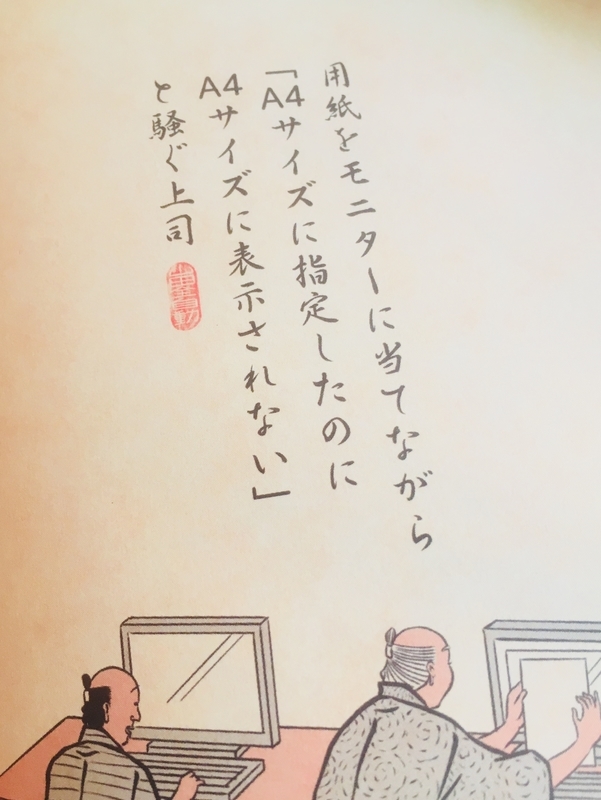 用紙をモニターに当てながら
「A4サイズに指定したのに
A4サイズに表示されない」
と騒ぐ上司